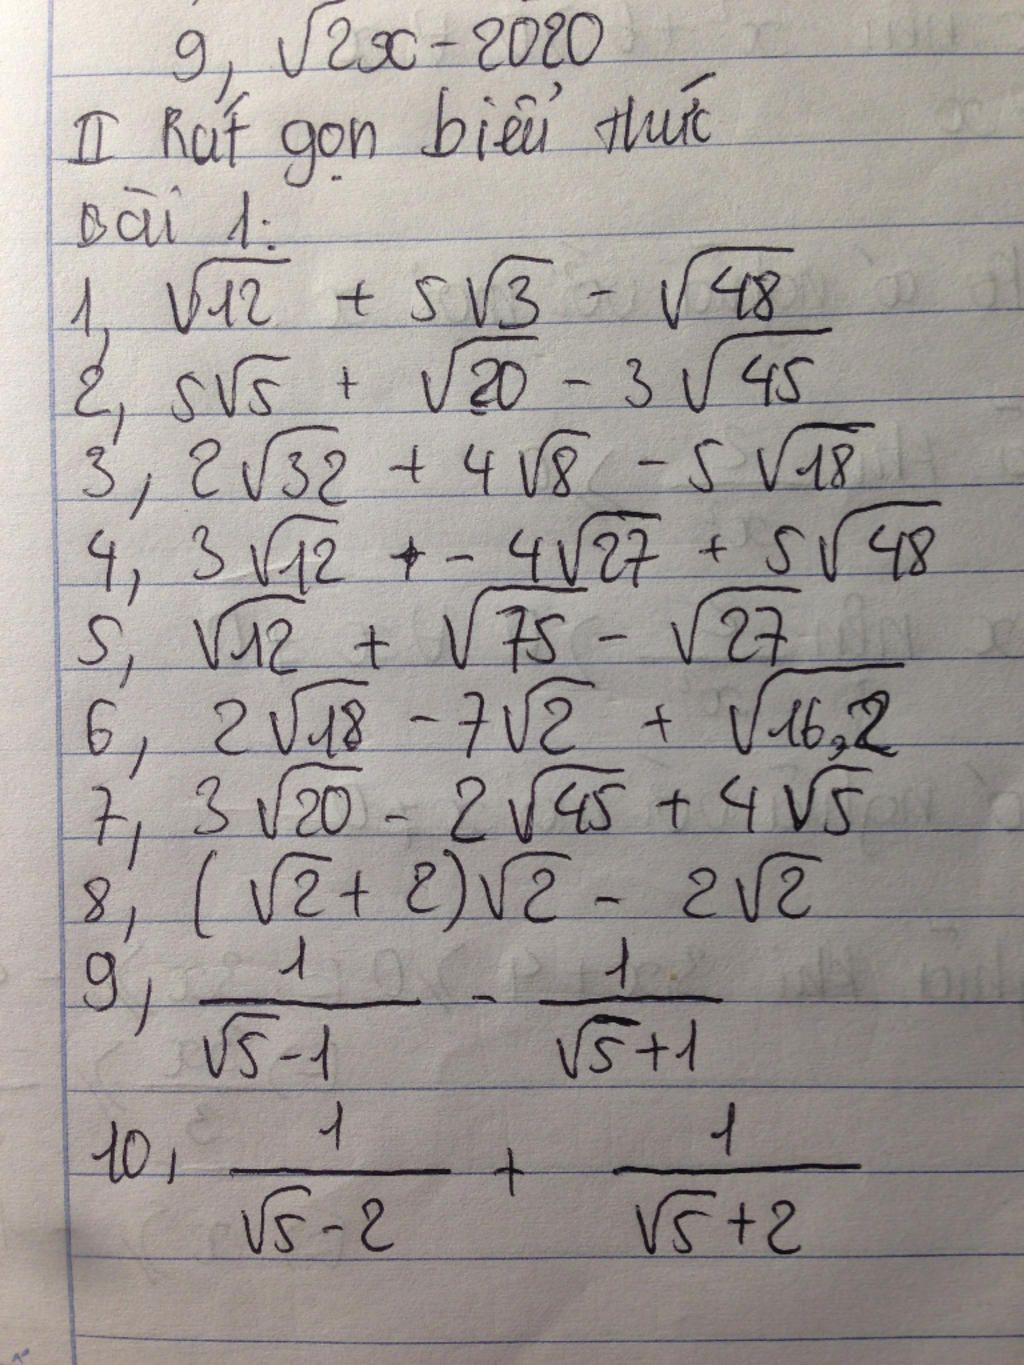 9, √2x-2020
II Rút gọn biểu thức
Bài 1:
1, √12 + 5√3 - √48
2, 5√5 + √20 - 3√45
3, 2√32 + 4√8 - 5√18
4, 3√12 - 4√27 + 5√48
5, √12 + √75 - √27
6, 2√18 - 7√2 + √16,2
7, 3√20 - 2√45 + 4√5
8, (√2 + 2)√2 - 2√2
9, 1/(√5-1) - 1/(√5+1)
10, 1/(√5-2) + 1/(√5+2)